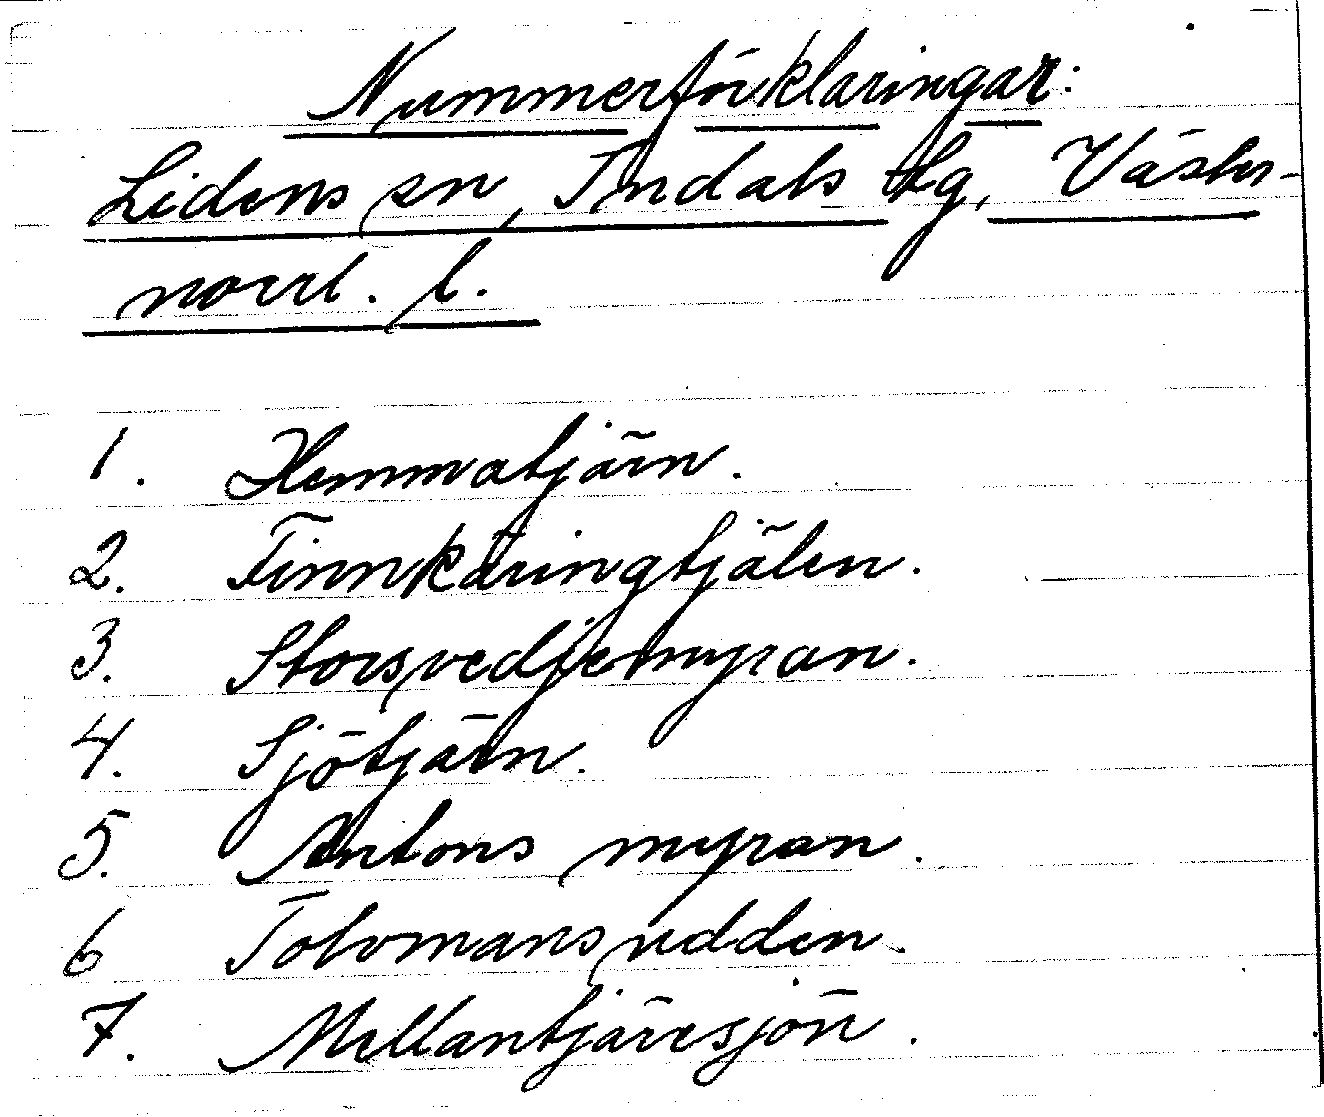 Nummerförklaringar:
Lidens sn, Indals tlg, Väster-
norrl. l.
1. Hemmatjärn.
2. Finnkäringtjälen.
3. Storsvedjemyran.
4. Sjötjärn.
5. Antons myran.
6 Tolvmansudden.
7. Mellantjärnsjön.